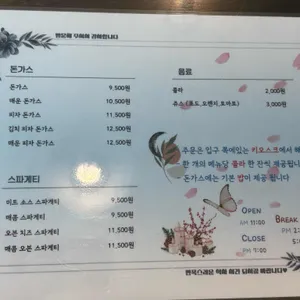 돈가스
돈가스 9,500원
매운 돈가스 10,500원
피자 돈가스 11,500원
김치 피자 돈가스 12,500원
매운 피자 돈가스 12,500원
스파게티
미트 소스 스파게티 9,500원
매콤 스파게티 9,500원
오븐 치즈 스파게티 11,500원
매콤 오븐 스파게티 11,500원
음료
콜라 2,000원
쥬스(포도, 오렌지, 토마토) 3,000원
주문은 입구 쪽에있는 키오스크에서 해
한 개의 메뉴당 콜라 한 잔씩 제공됩니
돈가스에는 기본 밥이 제공 됩니다
OPEN
AM 11:00
BREAK
CLOSE
PM 9:00